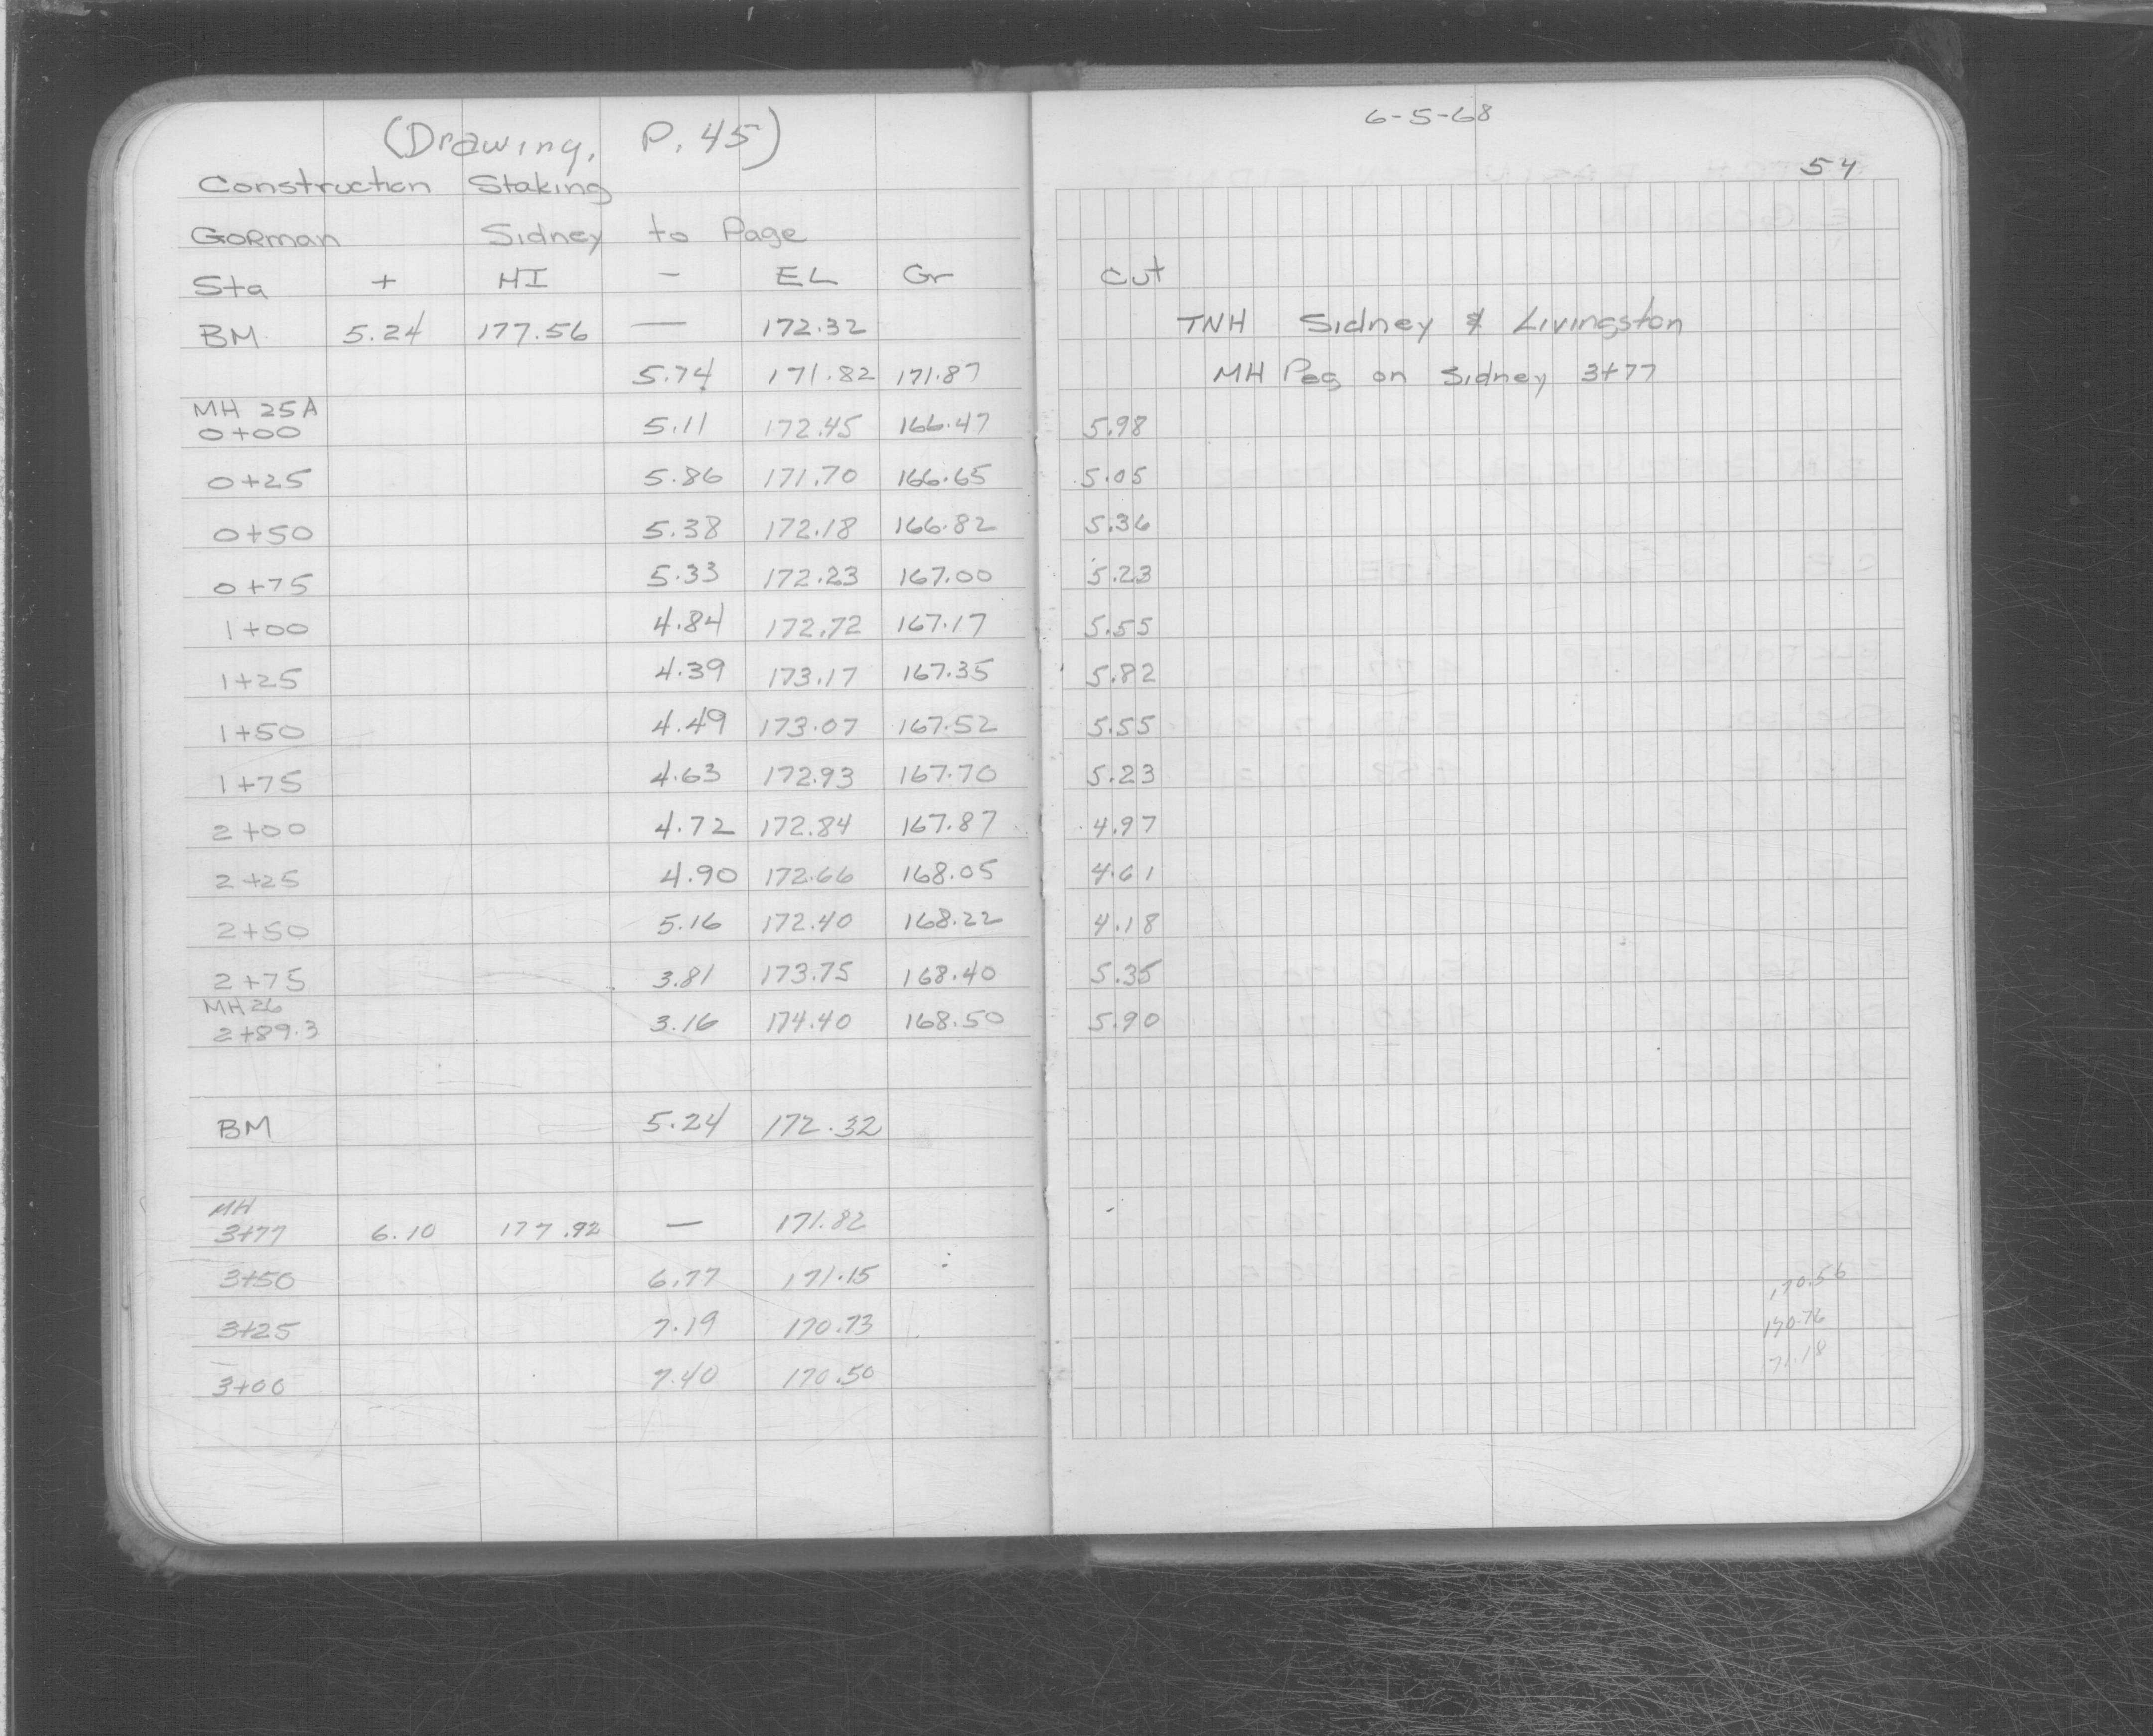 (Drawing, P. 45)
Construction Staking
GoRman Sidney to Page
Sta + HI - EL Gr
BM 5.24 177.56 — 172.32
5.74 171.82 171.87
MH 25A
0+00 5.11 172.45 166.47
0+25 5.86 171.70 166.65
0+50 5.38 172.18 166.82
0+75 5.33 172.23 167.00
1+00 4.84 172.72 167.17
1+25 4.39 173.17 167.35
1+50 4.49 173.07 167.52
1+75 4.63 172.93 167.70
2+00 4.72 172.84 167.87
2+25 4.90 172.66 168.05
2+50 5.16 172.40 168.22
2+75 3.81 173.75 168.40
MH 26
2+89.3 3.16 174.40 168.50
BM 5.24 172.32
MH
3+77 6.10 177.92 — 171.82
3+50 6.77 171.15
3+25 7.19 170.73
3+00 7.40 170.50
6-5-68
54
Cut
TNH Sidney & Livingston
MH Peg on Sidney 3+77
5.98
5.05
5.36
5.23
5.55
5.82
5.55
5.23
4.97
4.61
4.18
5.35
5.90
170.56
170.76
171.18